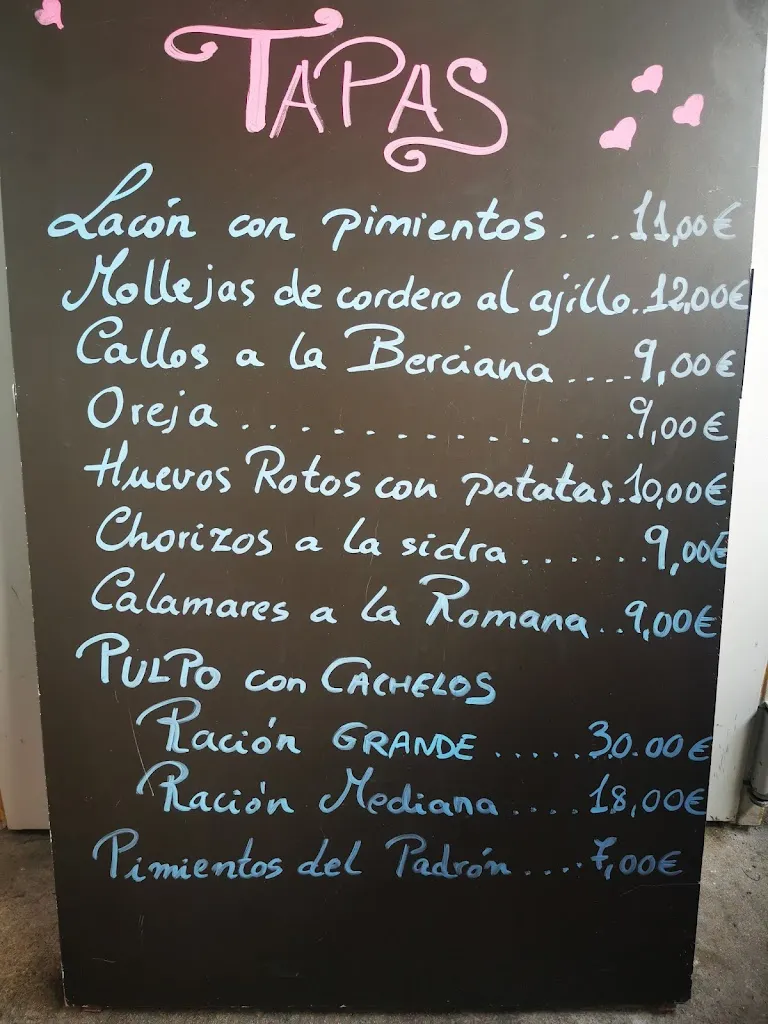 TAPAS
Lacón con pimientos....11,00€
Mollejas de cordero al ajillo.12,00€
Callos a la Berciana ....9,00€
Oreja ................9,00€
Huevos Rotos con patatas.10,00€
Chorizos a la sidra.......9,00€
Calamares a la Romana..9,00€
PULPO con CACHELOS
Ración GRANDE .....30.00€
Ración Mediana ....18,00€
Pimientos del Padrón....7,00€